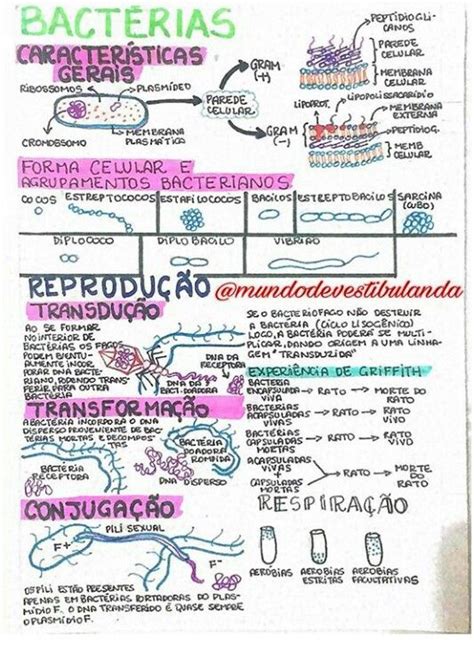 BACTÉRIAS
CARACTERÍSTICAS
GERAIS
RIBOSSOMOS
PLASMÍDEO
CROMOSSOMO
MEMBRANA
PLASMÁTICA
PAREDE
CELULAR
GRAM
(+)
GRAM
(-)
PEPTIDIOGLI-
CANOS
PAREDE
CELULAR
MEMBRANA
CELULAR
LIPOPROT.
LIPOPOLISSACARÍDIO
MEMBRANA
EXTERNA
PEPTIDIOG.
MEMB
CELULAR
FORMA CELULAR E
AGRUPAMENTOS BACTERIANOS
COCOS
ESTREPTOCOCOS
ESTAFILOCOCOS
BACILOS
ESTREPTOBACILOS
SARCINA
(CUBO)
DIPLOCOCO
DIPLOBACILO
VIBRIÃO
REPRODUÇÃO
@mundodevestibulanda
TRANSDUÇÃO
AO SE FORMAR
NO INTERIOR DE
BACTÉRIAS OS FAGOS
PODEM
INCOR-
PORAR DNA BACTE-
RIANO, PODENDO TRANS-
FERIR PARA OUTRA
BACTÉRIA
DNA DA
RECEPTORA
DNA DA
SE O BACTERIÓFAGO NÃO DESTRUIR
A BACTÉRIA (CICLO LISOGÊNICO)
LOGO, A BACTÉRIA PODERÁ SE MULTI-
PLICAR, DANDO ORIGEM A UMA LINHA-
GEM "TRANSDUZIDA"
EXPERIÊNCIA DE GRIFFITH
BACTERIA
ENCAPSULADA
VIVA
RATO
MORTE DO
RATO
BACTÉRIAS
ACAPSULADAS
VIVAS
RATO
RATO
VIVO
BACTÉRIAS
CAPSULADAS
MORTAS
RATO
RATO
VIVO
ACAPSULADAS
VIVAS
+
CAPSULADAS
MORTAS
RATO
MORTE
DO
RATO
TRANSFORMAÇÃO
A BACTÉRIA INCORPORA O DNA
DISPERSO PROVENIENTE DE BAC-
TÉRIAS MORTAS E DECOMPOS-
TAS
BACTÉRIA
RECEPTORA
BACTÉRIA
DOADORA
ROMPIDA
DNA DISPERSO
CONJUGAÇÃO
PILI SEXUAL
F+
F-
OS PILI ESTÃO PRESENTES
APENAS EM BACTÉRIAS PORTADORAS DO PLAS-
MÍDIO F. O DNA TRANSFERIDO É QUASE SEMPRE
O PLASMÍDIO F.
RESPIRAÇÃO
AERÓBIAS
AEROBIAS
ESTRITAS
AEROBIAS
FACULTATIVAS